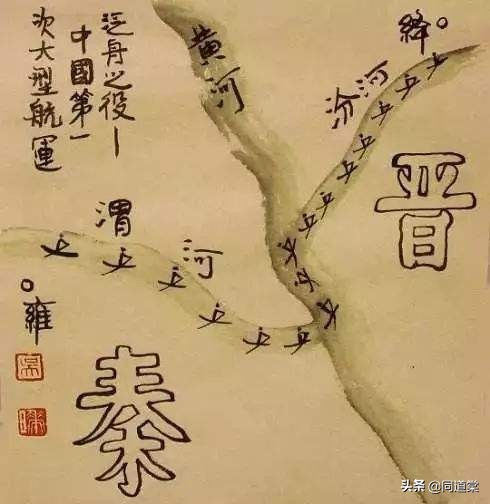 泛舟之役—
中國第一
次大型航運
黄河
絳
汾河
晋
渭河
雍
秦
头条 @同道棠